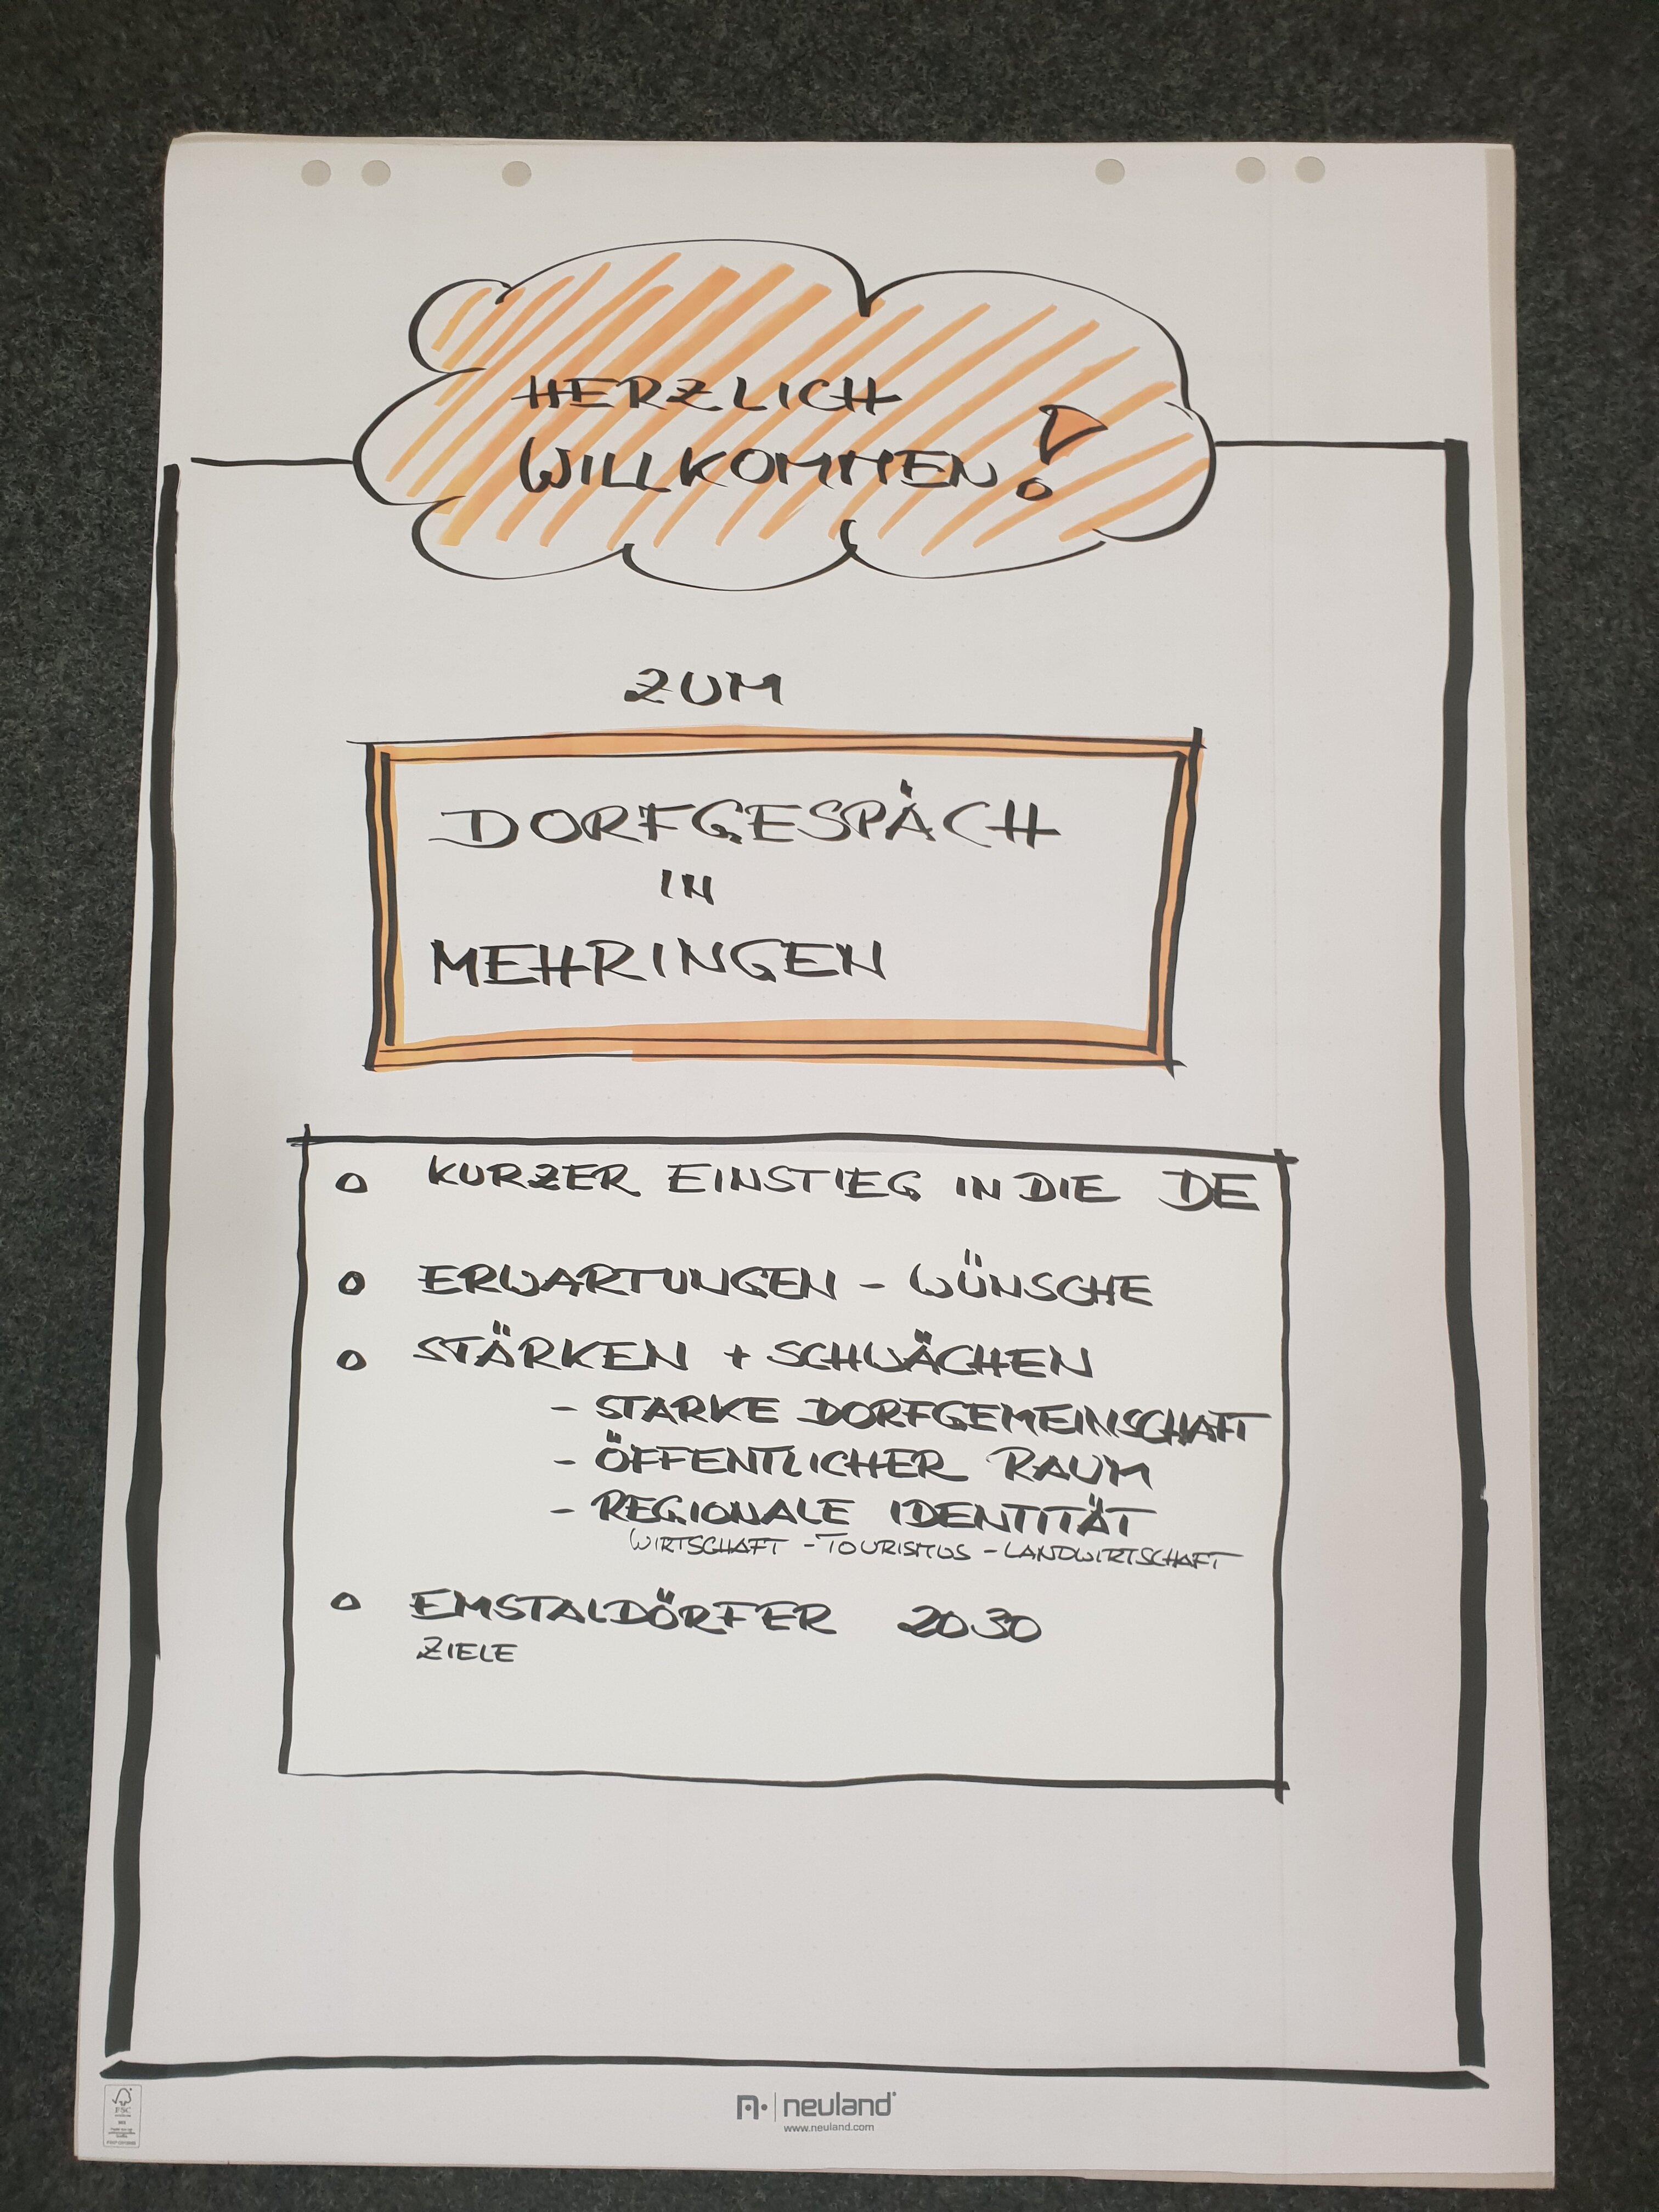 HERZLICH
WILLKOMMEN!
ZUM
DORFGESPÄCH
IN
MEHRINGEN
o KURZER EINSTIEG IN DIE DE
o ERWARTUNGEN - WÜNSCHE
o STÄRKEN + SCHWÄCHEN
- STARKE DORFGEMEINSCHAFT
- ÖFFENTLICHER RAUM
- REGIONALE IDENTITÄT
WIRTSCHAFT - TOURISMUS - LANDWIRTSCHAFT
o EMSTALDÖRFER 2030
ZIELE
FSC
neuland
www.neuland.com